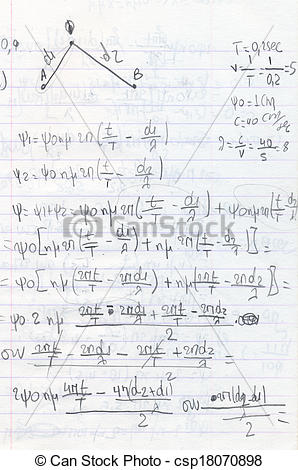 0,4
A d1 d2 B
T=0,2sec
ν=1/T=1/0,2=5
ψ0=1cm
c=40 cm/sec
λ=c/ν=40/5=8
ψ1=ψ0ημ2π(t/T-d1/λ)
ψ2=ψ0ημ2π(t/T-d2/λ)
ψ=ψ1+ψ2=ψ0ημ2π(t/T-d1/λ)+ψ0ημ2π(t/T-d2/λ)
=ψ0[ημ2π(t/T-d1/λ)+ημ2π(t/T-d2/λ)]=
=ψ0[ημ(2πt/T-2πd1/λ)+ημ(2πt/T-2πd2/λ)]=
=ψ0·2ημ (2πt/T-2πd1/λ+2πt/T-2πd2/λ)/2 ·
συν (2πt/T-2πd1/λ-2πt/T+2πd2/λ)/2 =
2ψ0ημ
© Can Stock Photo
© Can Stock Photo - csp18070898